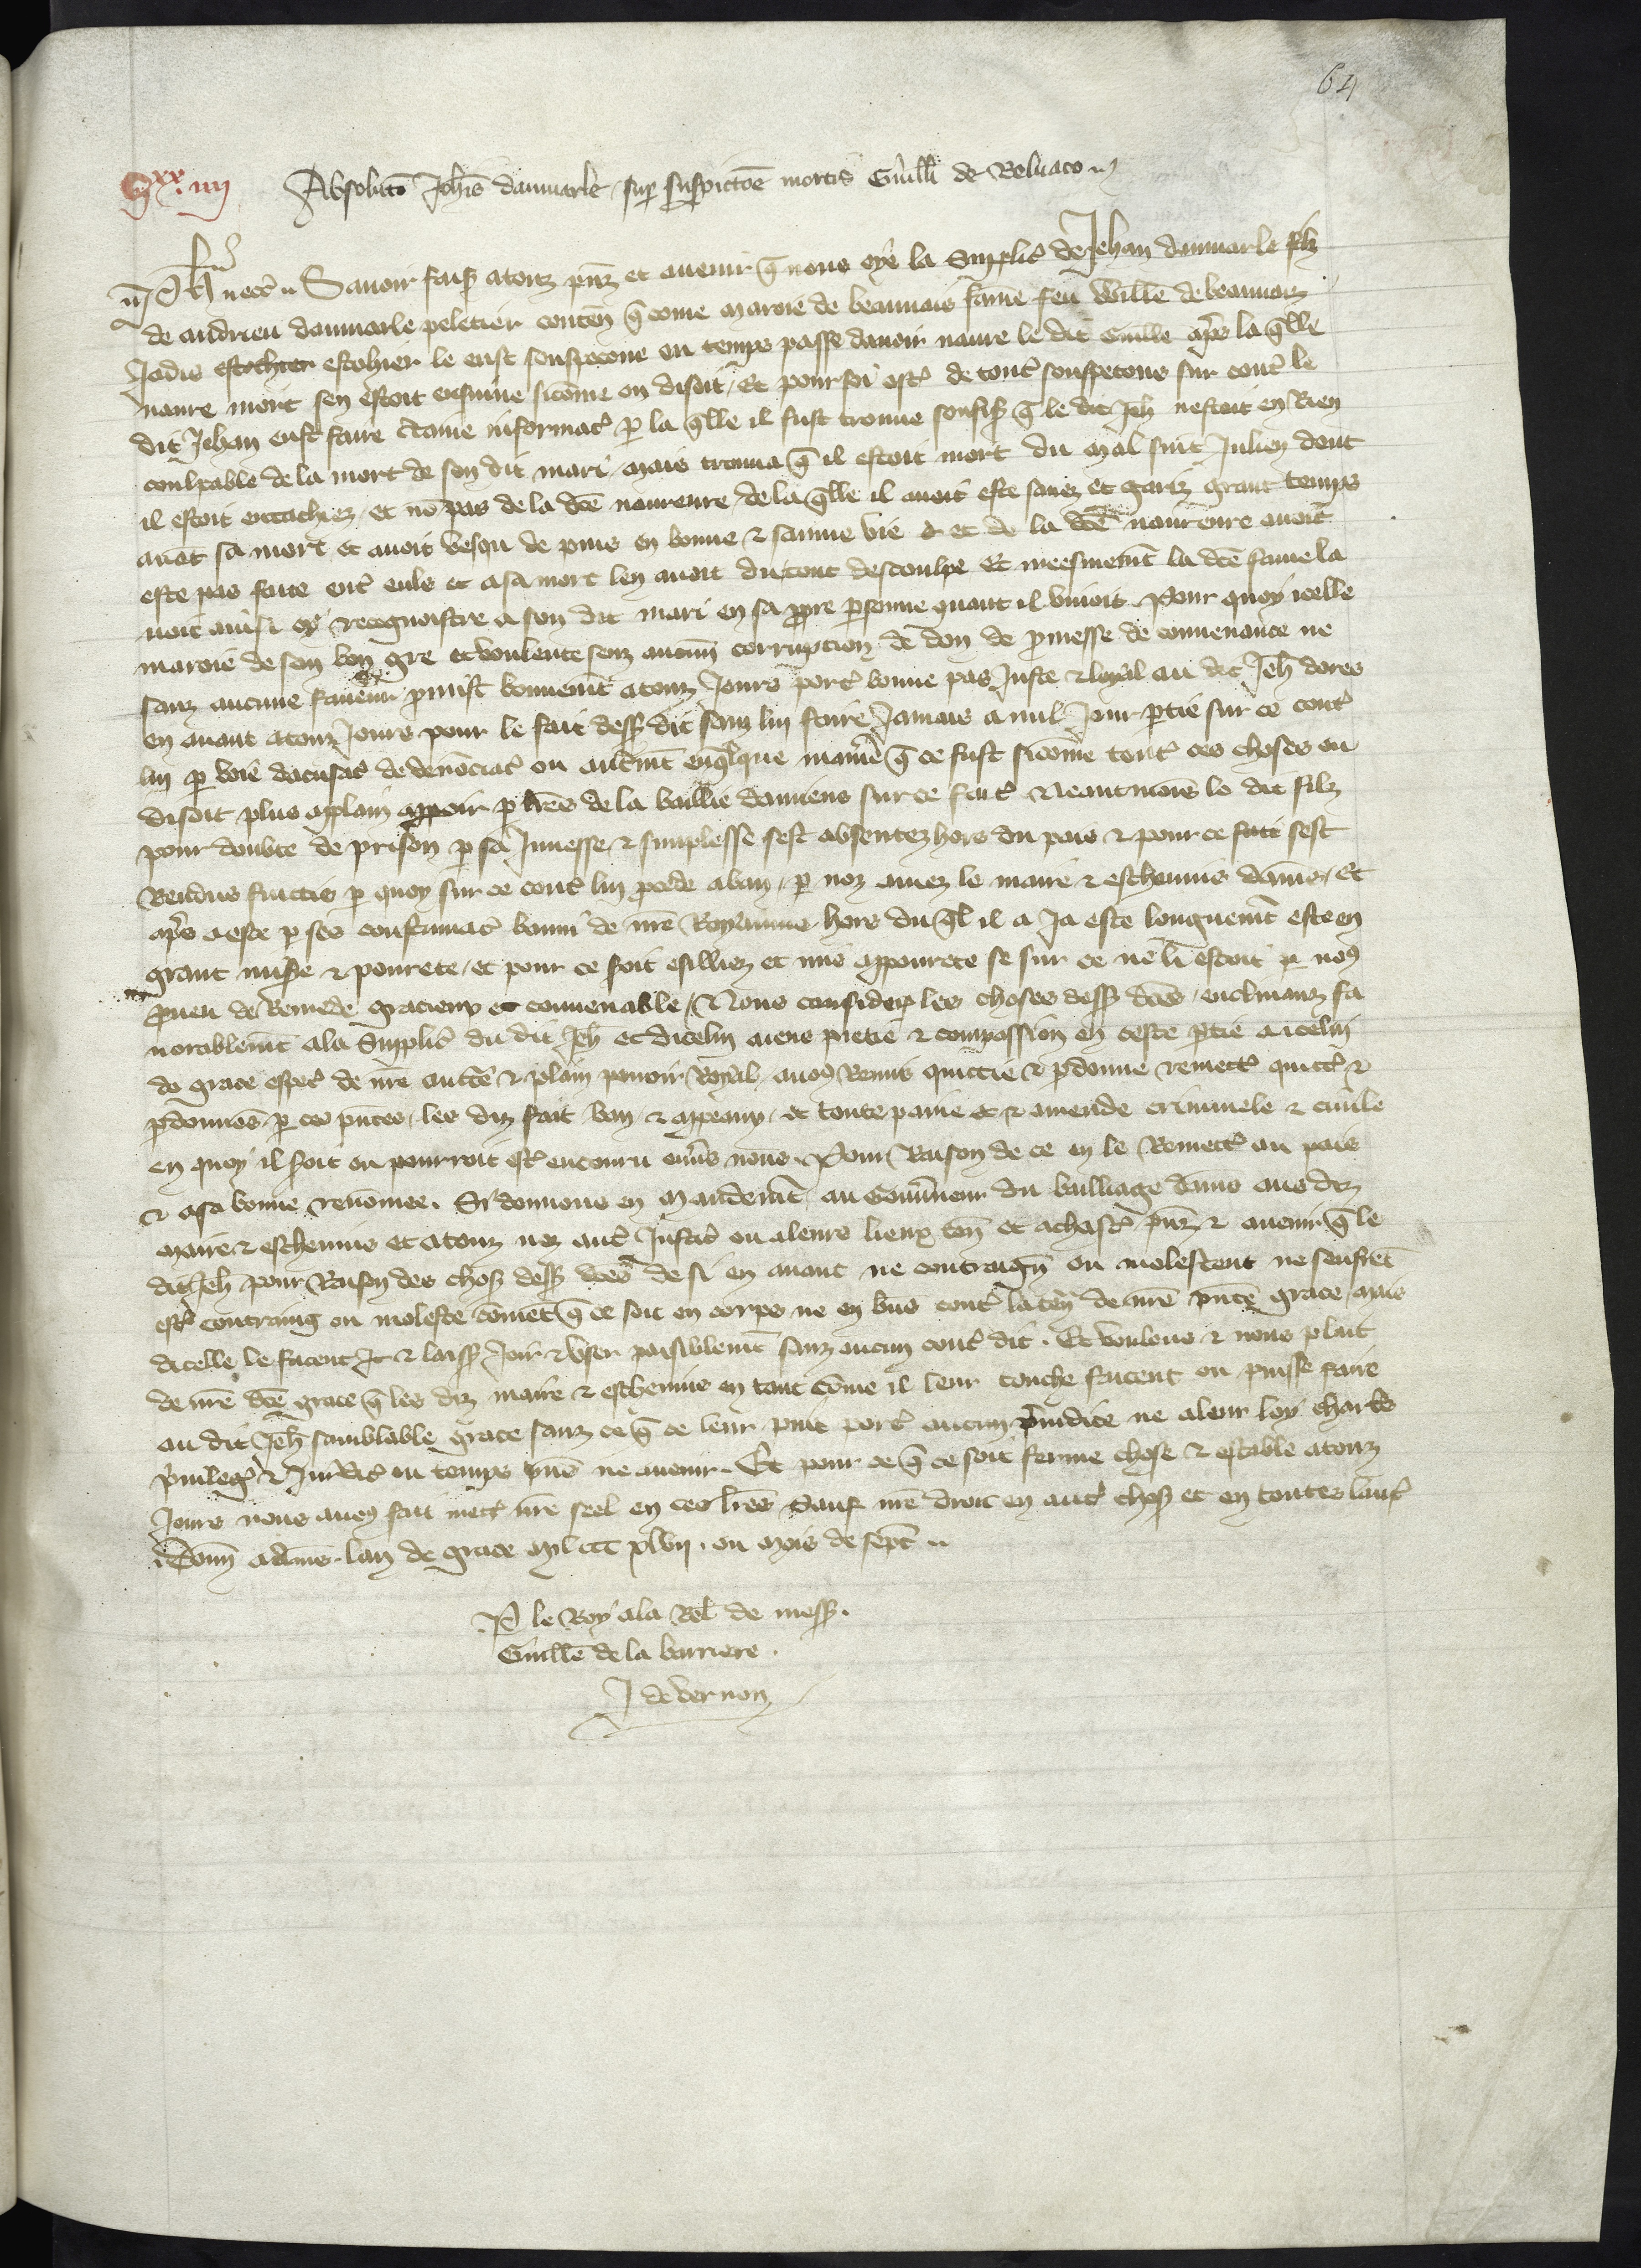 64
Absolutio Joh̄is daumarle sup suspictōe mortis Guilli de Beluaco
Ph̄e &c̄ Sauoir faisōs atouz p̄ns et auenir q̄ nous oye la Supplicacō de Jehan daumarle filz
de andrieu daumarle peletier conten̄ q̄ come Maroie de beauuais fame feu Willē de beauuaiz
Jadis estochier estohier le eust souspecone ou temps passe dauoir naure le dit Guillē ap̄s la q̄lle
naure mort sen estoit ensuiue sicōme on disoit / Et pour soi ost̄ de tout̄ souspecons sur cont̄ le
dit Jehan eust faire c̄taine informac̄ p̱ la q̄lle il fust trouue souffis̄ q̄ le dit Jeh̄ nestoit en Rien
coulpable de la mort de son dit mari mais trouua q̄ il estoit mort du mal saint Julien dont
il estoit entachiez / et nō pas de la dc̄e naureure / de la q̄lle il auoit este sanez et gariz grant temps
auāt sa mort et auoit vesqu de puis en bonne & sainne vie & et de la dc̄e naureure auoit
este pais faite ent̄ euls et a sa mort len auoit du tout descoulpe Et meesmemt̄ la dc̄e fame la
uoit ainsi oy recognoistre a son dit mari en sa p̱pre p̱sonne quant il viuoit. Pour quoy icelle
maroie de son bon gre et voulente senz aucun̄ corrupcion de don de p̱messe de conuenance ne
sanz aucune faueur p̱mist bonnemt̄ atouz Jours port̄ bonne pais Juste & loyal au dit Jeh̄ dores
en auant atouz Jours pour le fait dess̄ dit sanz lui faire Jamais a nul Jour p̱tie sur ce cont̄
lui p̱ voie dacusac̄ de denōciac̄ ou aut̄mt̄ en q̄lque manie q̄ ce fust sicōme tout̄ ces choses on
disoit plus aplain apoir p̱ lr̄es de la baillie damiens sur ce fait̄ Neantmois le dit filz
pour doubte de prison p̱ sa Junesse & simplesse sest absentez hors du pais & pour ce fait sest
Rendus fuitis p̱ quoy sur ce cont̄ lui p̱cede a ban / p̱ noz amez le maire & escheuins damiēs / Et
ap̄s a este p̱ ses confirmac̄ banni de nr̄e Royaume hors du q̄l il a Ja este longuemt̄ este en
grant mis̄e & pourete / et pour ce soit esilliez et mis a pourete se sur ce ne li estoit p̱ nos
p̱ueu de Remede gracieux et conuenable / Nous consider̄ les choses dess̄ dc̄es / enclinanz fa
uorablemt̄ ala Supplic̄ du dit Jeh̄ et dicelui aiens pietie & compassion en ceste p̱tie a icelui
de grace espec̄ de nr̄e auct̄e & plain pouoir Royal / auōs Remis quittie & p̱donne remect̄ quitt̄ &
p̱donnons p̱ ces p̄ntes / les diz fait ban & appeaux / & toute paine & & amende criminele & ciuile
en quoy il soit ou pourroit est̄ encouru enu̱s nous. Pour Raison de ce en le Remect̄ au pais
& asa bonne renōmee. Si donnons en Mandemt̄ au Gouu̱neur du bailliage damiēs aus diz
Maire & escheuins et atouz noz aut̄ Justic̄ ou aleurs lieux ten̄ et achast̄ p̄nz & auenir q̄ le
dit Jeh̄ pour Raison des chos̄ dess̄ dc̄es de si en auant ne contraign̄ ou molestent ne seufrēt
est̄ contraing ou moleste cōment q̄ ce soit en corps ne en bns̄ cont̄ la ten̄ de nr̄e p̄nte grace / mais
dicelle le facent Jr & laiss̄ Joir & vser paisiblemt̄ sanz aucun cont̄ dit. Et voulons & nous plait
de nr̄e dc̄e grace q̄ les diz maire & escheuins en tant cōme il leur touche facent ou puisse faire
au dit Jeh̄ samblable grace sanz ce q̄ ce leur puit port̄ aucun p̄iudice ne aleur loy chart̄e
p̄uileḡ & Jurdic̄ ou temps p̄nt ne auenir. Et pour ce q̄ ce soit ferme chose & estable atouz
Jours nous auōs fait mect̄ nr̄e seel en ces lr̄es Sauf nr̄e droit en aut̄ chos̄ et en toutes laut̄
Donn̄ a damiēs lan de grace Mil ccc xlvij. ou mois de sept̄
P̱ le Roy ala Rel̄ de mess̄.
Guillē de la barriere.
J de vernon